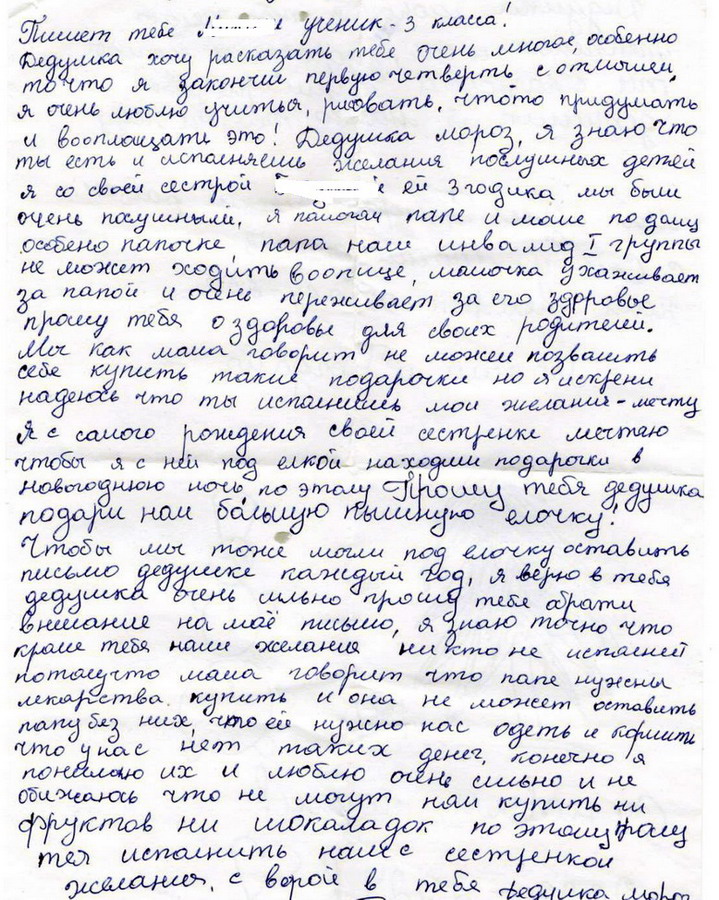 Пишет тебе М е ученик - 3 класса!
Дедушка хочу рассказать тебе очень многое, особенно
то что я закончил первую четверть с отличием,
я очень люблю учиться, рисовать, чтото придумать
и вооплощать это! Дедушка мороз, я знаю что
ты есть и исполняешь желания послушных детей
я со своей сестрой е ей 3 годика мы были
очень послушными, я помогаю папе и маме по дому
особено папочке, папа наш инвалид I группы
не может ходить воопще, мамочка ухаживает
за папой и очень переживает за его здоровье
прошу тебя о здоровье для своих родителей.
Мы как мама говорит не можем позволить
себе купить такие подарочки но я искрени
надеюсь что ты исполнишь мои желания - мечту
Я с самого рождения своей сестренке мечтаю
чтобы я с ней под елкой находили подарочки в
новогоднюю ночь, по этому Прошу тебя дедушка
подари нам большую пышную елочку!
Чтобы мы тоже могли под елочку оставить
письмо дедушке каждый год, я верю в тебя
дедушка очень сильно прошу тебе обрати
внимание на моё письмо, я знаю точно что
кроме тебя наши желания ни кто не исполнит
потомучто мама говорит что папе нужны
лекарства купить и она не может оставить
папу без них, что ей нужно нас одеть и кормить
что у нас нет таких денег, конечно я
понимаю их и люблю очень сильно и не
обижаюсь что не могут нам купить ни
фруктов ни шокаладок по этому прошу
тея исполнить наше с сестренкой
желания, с верой в тебя дедушка мороз